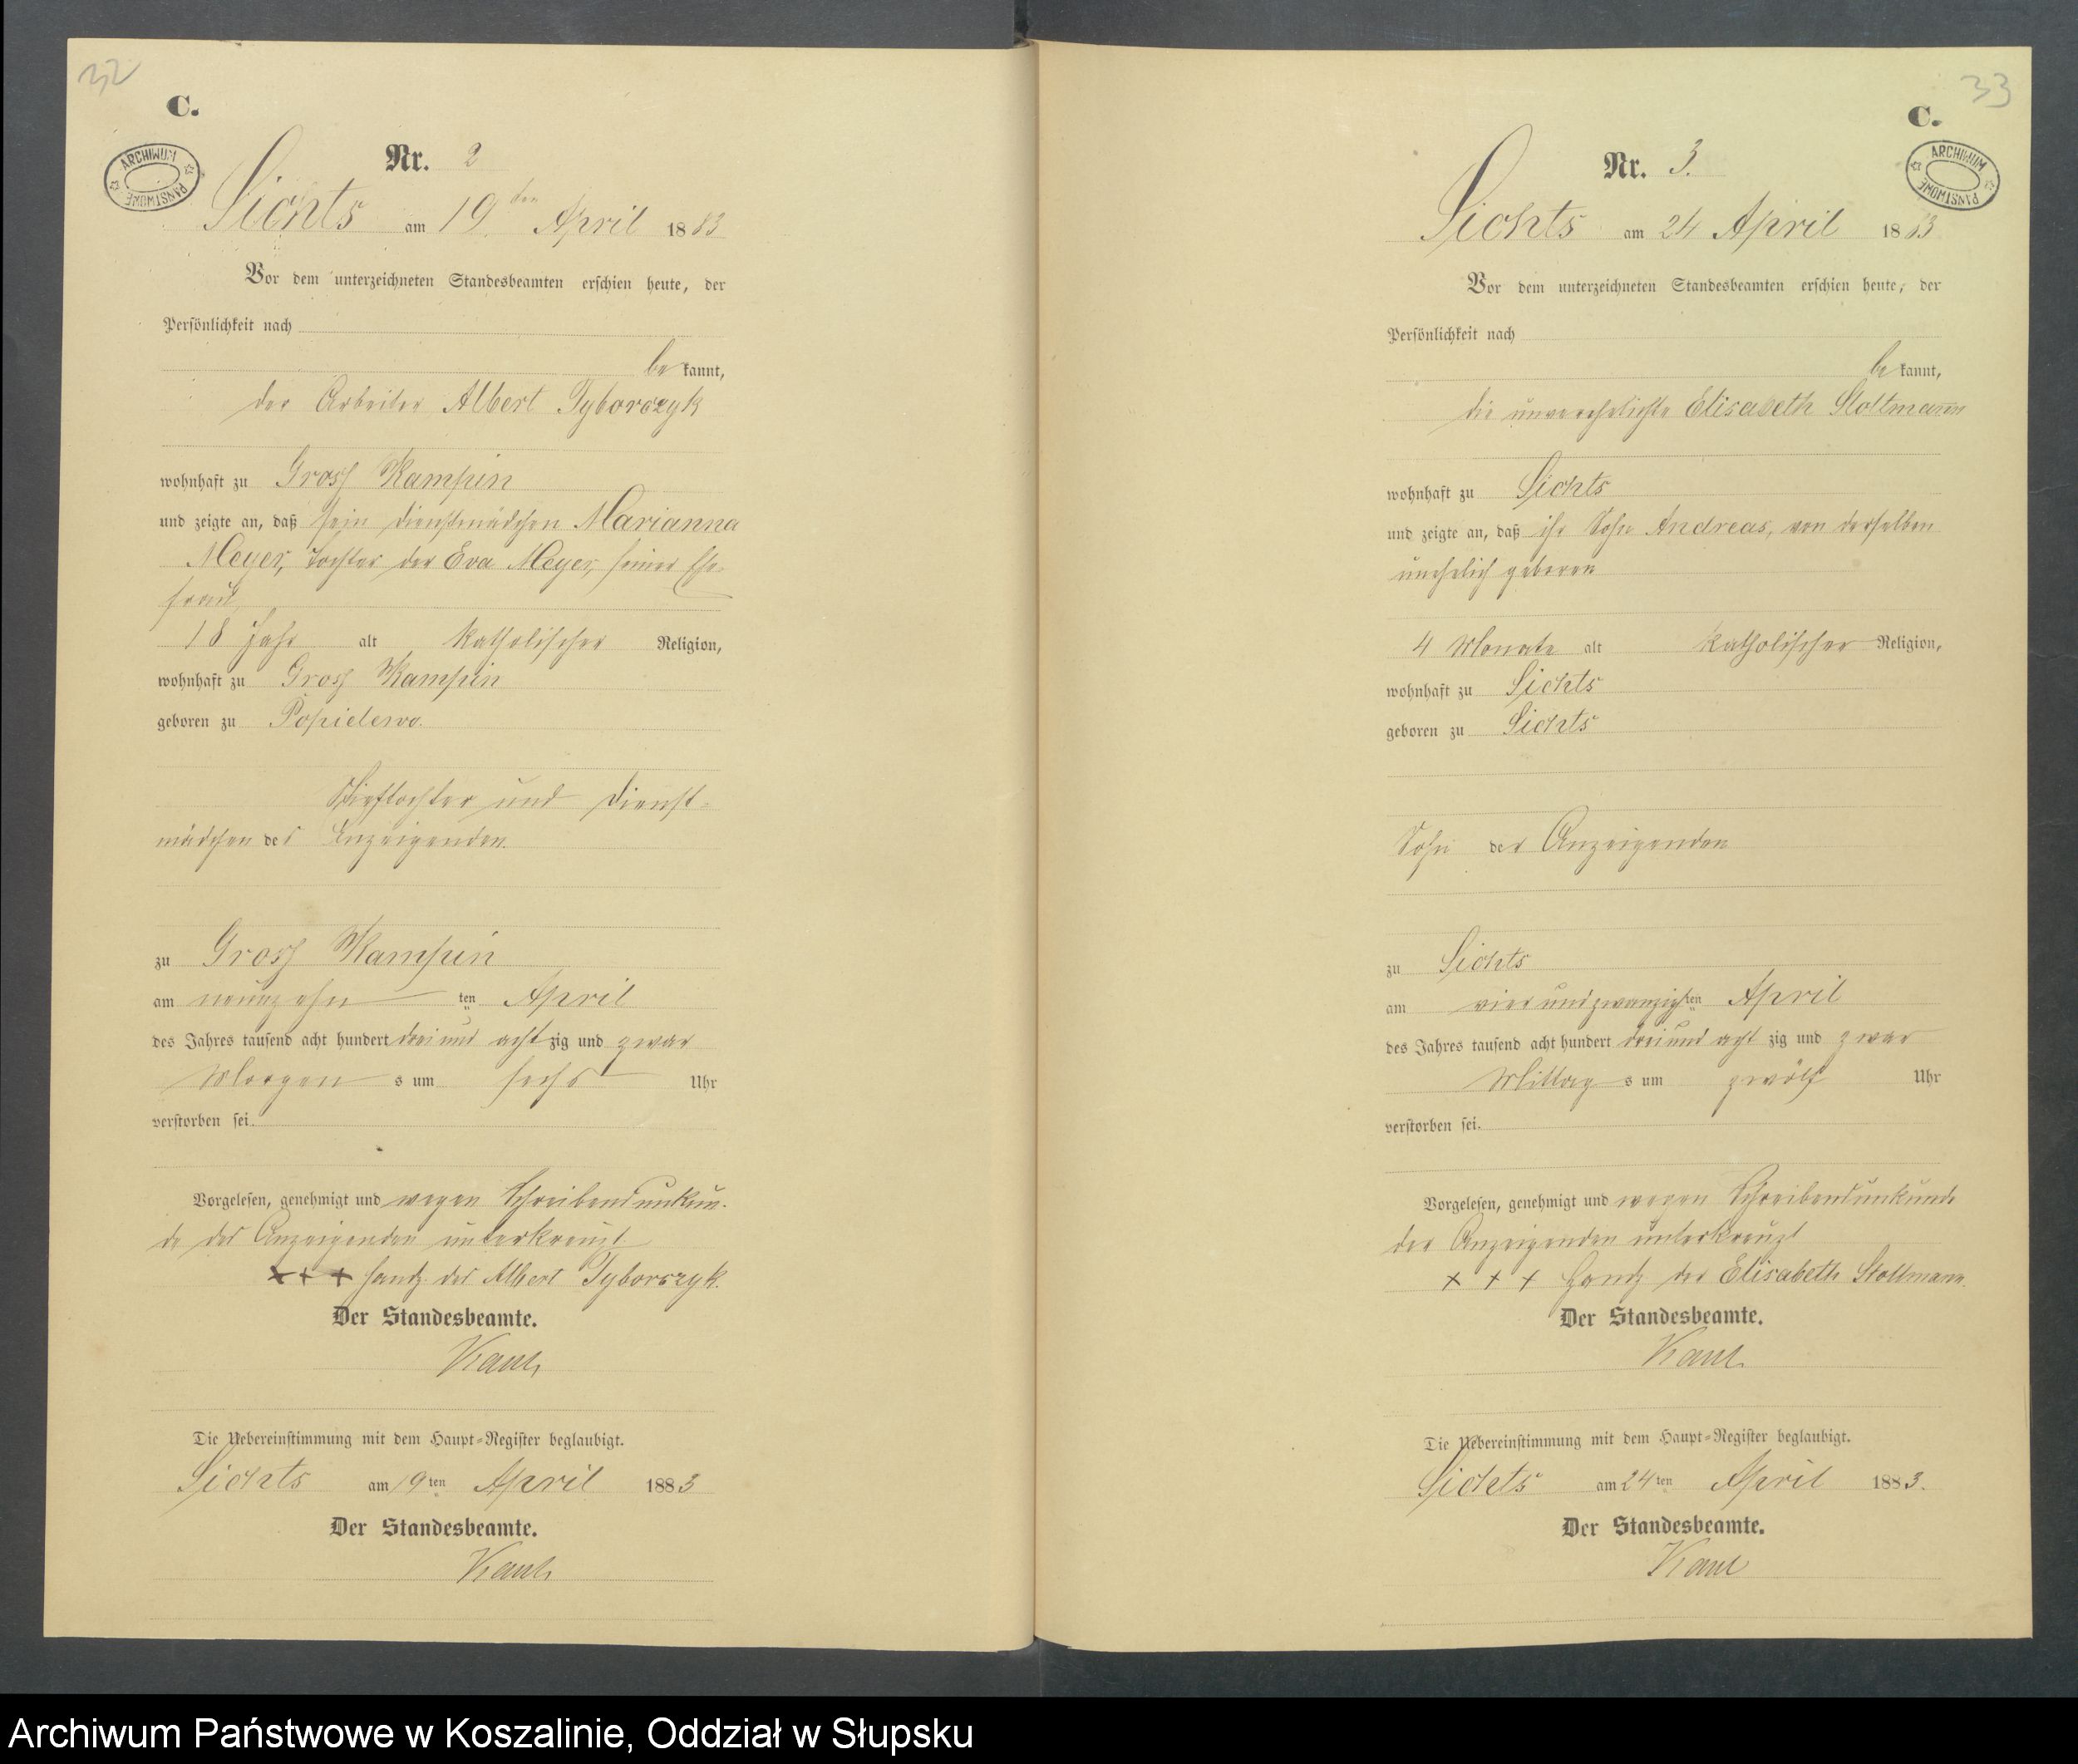 32
C.
ARCHIWUM PAŃSTWOWE
Nr. 2
Sichts am 19ten April 1883
Vor dem unterzeichneten Standesbeamten erschien heute, der
Persönlichkeit nach
be kannt,
der Arbeiter Albert Tyborczyk
wohnhaft zu Gross Kampin
und zeigte an, daß sein Dienstmädchen Marianna
Meyer, Tochter der Eva Meyer, seiner Ehe-
frau,
18 Jahr alt katholischer Religion,
wohnhaft zu Gross Kampin
geboren zu Popielewo.
Stieftochter und Dienst-
mädchen des Anzeigenden.
zu Gross Kampin
am neunzehn ten April
des Jahres tausend acht hundert drei und acht zig und zwar
Morgen s um sechs Uhr
verstorben sei.
Vorgelesen, genehmigt und wegen Schreibensunkun-
de des Anzeigenden unterkreuzt
+++ Handz. des Albert Tyborczyk.
Der Standesbeamte.
Die Uebereinstimmung mit dem Haupt-Register beglaubigt.
Sichts am 19ten April 1883
Der Standesbeamte.
33
C.
ARCHIWUM PAŃSTWOWE
Nr. 3.
Sichts am 24 April 1883
Vor dem unterzeichneten Standesbeamten erschien heute, der
Persönlichkeit nach
be kannt,
die unverehelichte Elisabeth Stoltmann
wohnhaft zu Sichts
und zeigte an, daß ihr Sohn Andreas, von derselben
unehelich geboren
4 Monate alt katholischer Religion,
wohnhaft zu Sichts
geboren zu Sichts
Sohn der Anzeigenden
zu Sichts
am vier und zwanzigsten April
des Jahres tausend acht hundert drei und acht zig und zwar
Mittag s um zwölf Uhr
verstorben sei.
Vorgelesen, genehmigt und wegen Schreibensunkunde
der Anzeigenden unterkreuzt
+ + + Handz der Elisabeth Stoltmann.
Der Standesbeamte.
Die Uebereinstimmung mit dem Haupt-Register beglaubigt.
Sichts am 24ten April 1883.
Der Standesbeamte.
Archiwum Państwowe w Koszalinie, Oddział w Słupsku